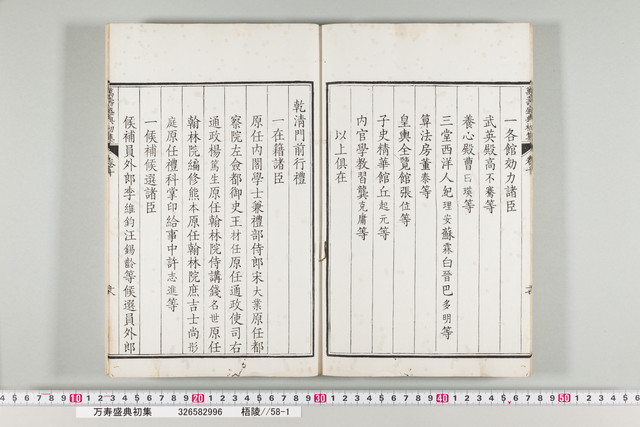 一各館効力諸臣
武英殿高不騫等
養心殿曹曰瑛等
三堂西洋人紀理安蘇霖白晉巴多明等
算法房董泰等
皇輿全覽館張位等
子史精華館丘起元等
内官學教習龔克庸等
以上俱在
乾清門前行禮
一在籍諸臣
原任内閣學士兼禮部侍郎宋大業原任都
察院左僉都御史王材任原任通政使司右
通政楊篤生原任翰林院侍講錢名世原任
翰林院編修熊本原任翰林院庶吉士尚彤
庭原任禮科掌印給事中許志進等
一候補候選諸臣
候補員外郎李維鈞汪錫齡等候選員外郎
萬壽盛典初集
万寿盛典初集 326582996 梧陵//58-1
10 20 30 40 50